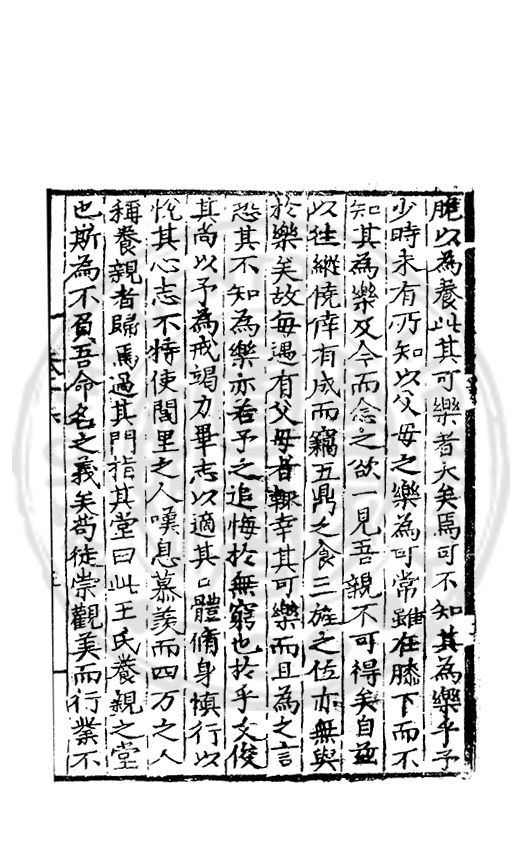 脆以為養此其可樂者大矣焉可不知其為樂乎予
少時未有所知以父母之樂為可常雖在膝下而不
知其為樂及今而念之欲一見吾親不可得矣自茲
以往縱僥倖有成而竊五鼎之食三旌之位亦無與
於樂矣故每遇有父母者輙幸其可樂而且為之言
恐其不知為樂亦若予之追悔於無窮也於乎文俊
其尚以予為戒竭力畢志以適其口體脩身慎行以
悅其心志不特使閭里之人嘆息慕羡而四方之人
稱養親者歸焉過其門指其堂曰此王氏養親之堂
也斯為不負吾命名之義矣苟徒崇觀美而行業不